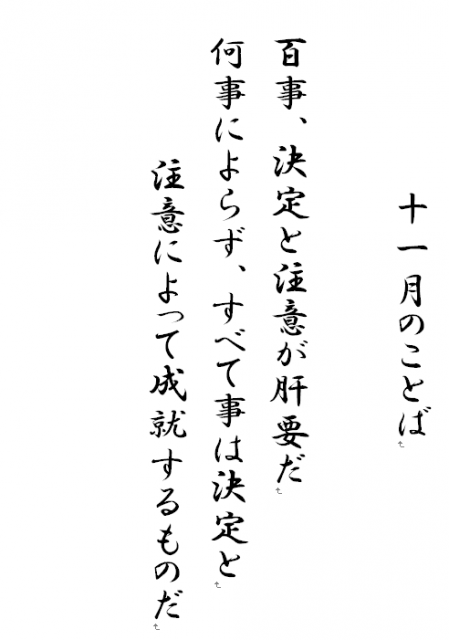 十一月のことば
百事、決定と注意が肝要だ
何事によらず、すべて事は決定と
注意によって成就するものだ